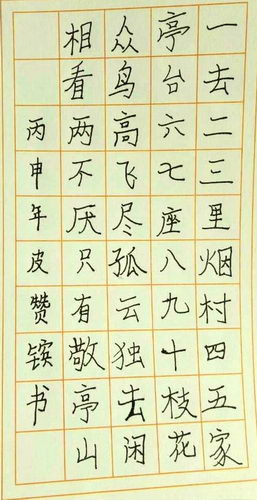 一去二三里烟村四五家
亭台六七座八九十枝花
众鸟高飞尽孤云独去闲
相看两不厌只有敬亭山
丙申年皮赞镔书